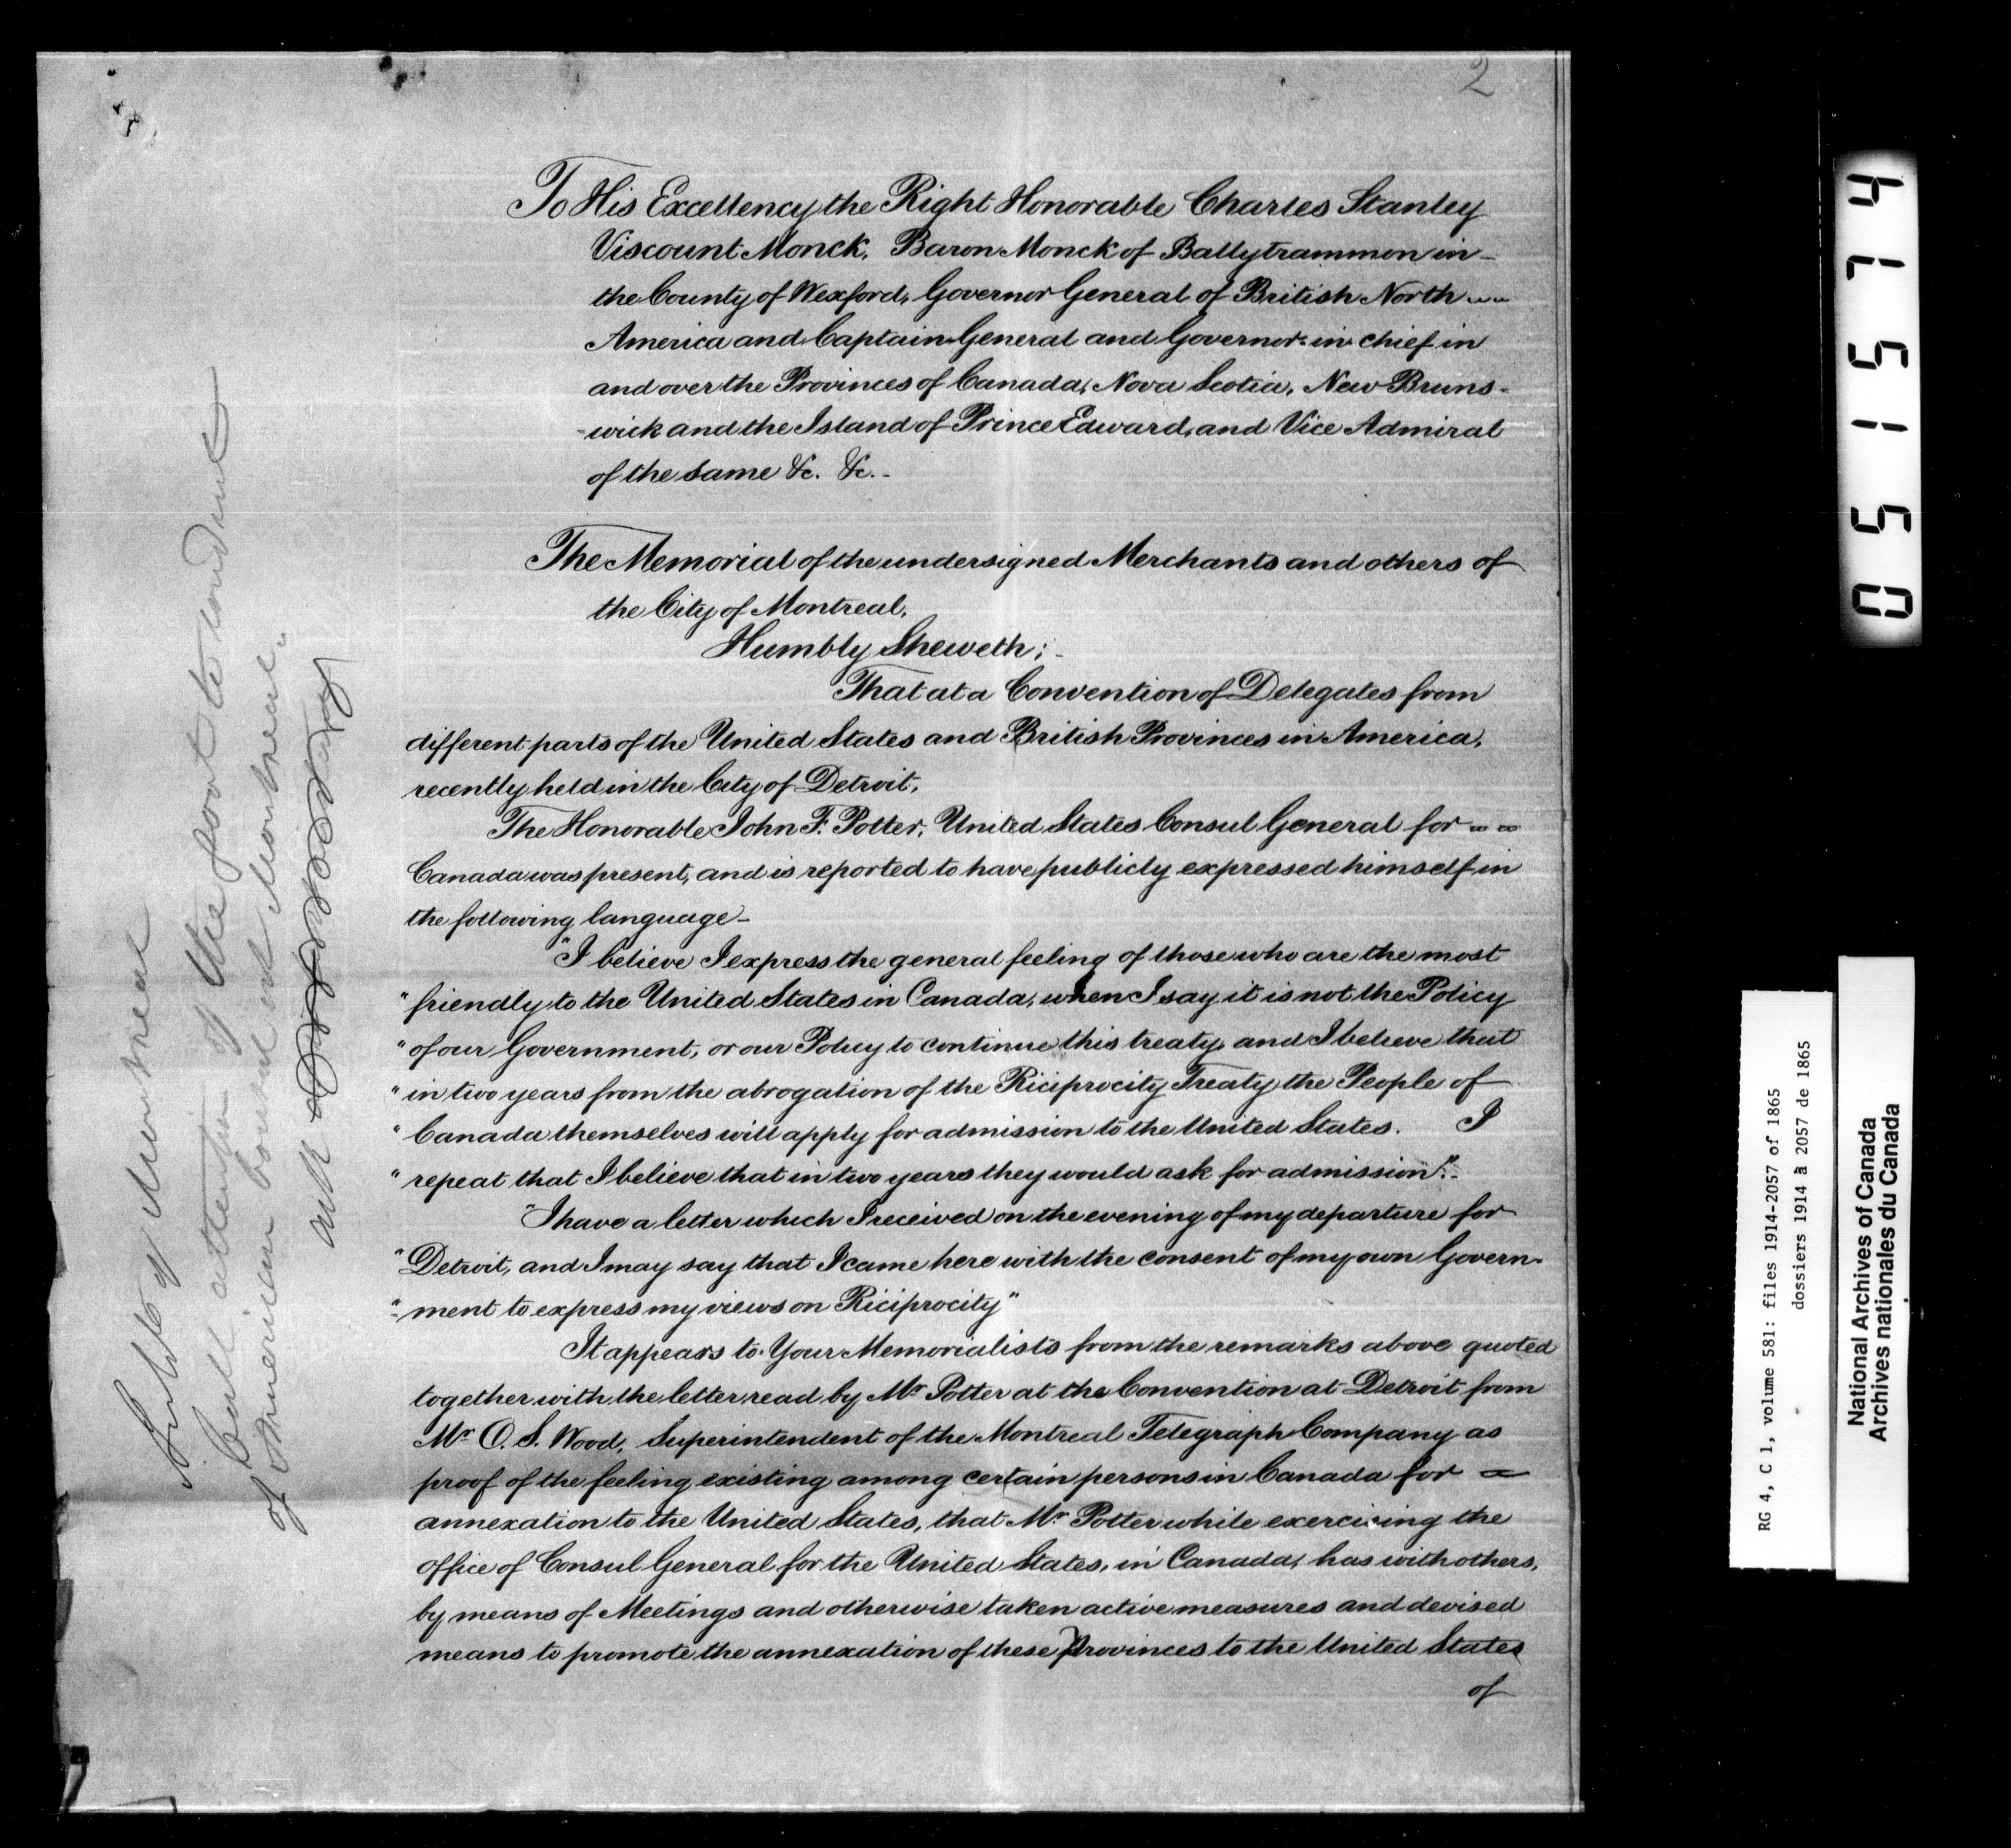 2
To His Excellency the Right Honorable Charles Stanley
Viscount Monck, Baron Monck of Ballytrammon in
the County of Wexford, Governor General of British North
America and Captain General and Governor in chief in
and over the Provinces of Canada, Nova Scotia, New Bruns-
-wick and the Island of Prince Edward, and Vice Admiral
of the same &c. &c.-
The Memorial of the undersigned Merchants and others of
the City of Montreal,
Humbly Sheweth;-
That at a Convention of Delegates from
different parts of the United States and British Provinces in America,
recently held in the City of Detroit,
The Honorable John F. Potter, United States Consul General for
Canada was present, and is reported to have publicly expressed himself in
the following language-
"I believe I express the general feeling of those who are the most
"friendly to the United States in Canada, when I say it is not the Policy
"of our Government, or our Policy to continue this treaty, and I believe that
"in two years from the abrogation of the Riciprocity Treaty the People of
"Canada themselves will apply for admission to the United States. I
"repeat that I believe that in two years they would ask for admission".-
"I have a letter which I received on the evening of my departure for
"Detroit, and I may say that I came here with the consent of my own Govern-
"-ment to express my views on Riciprocity"
It appears to Your Memorialists from the remarks above quoted
together with the letter read by Mr Potter at the Convention at Detroit from
Mr O. S. Wood, Superintendent of the Montreal Telegraph Company as
proof of the feeling existing among certain persons in Canada for
annexation to the United States, that Mr Potter while exercising the
office of Consul General for the United States, in Canada, has with others,
by means of Meetings and otherwise taken active measures and devised
means to promote the annexation of these Provinces to the United States
of
of Montreal
Call attention of the Govt to conduct
of American Consul at Montreal.
051574
RG 4, C 1, volume 581: files 1914-2057 of 1865
dossiers 1914 à 2057 de 1865
National Archives of Canada
Archives nationales du Canada